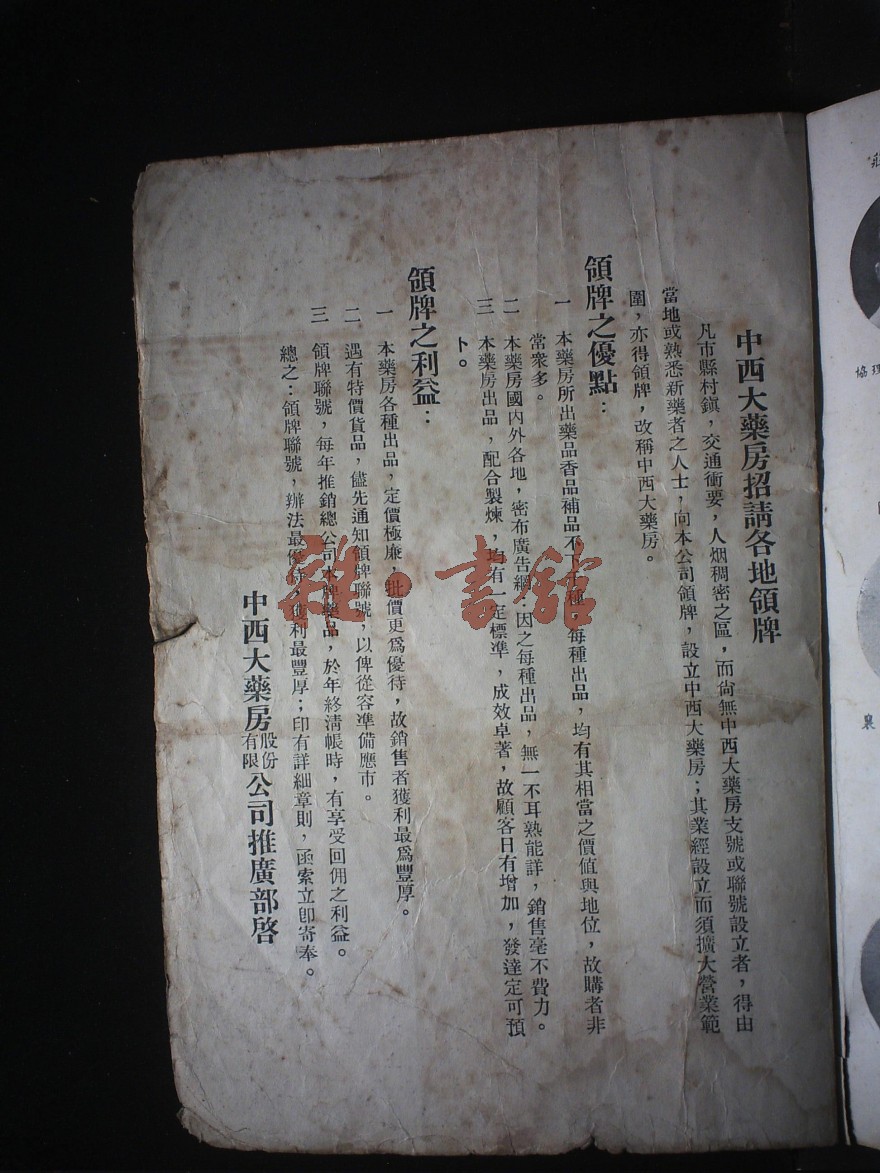 中西大藥房招請各地領牌
凡市縣村鎮，交通衝要，人烟稠密之區，而尙無中西大藥房支號或聯號設立者，得由
當地或熟悉新藥者之人士，向本公司領牌，設立中西大藥房；其業經設立而須擴大營業範
圍，亦得領牌，改稱中西大藥房。
領牌之優點：
一 本藥房所出藥品香品補品不下 種，每種出品，均有其相當之價値與地位，故購者非
常衆多。
二 本藥房國內外各地，密布廣吿網；因之每種出品，無一不耳熟能詳，銷售毫不費力。
三 本藥房出品，配合製煉，均有一定標準，成效卓著，故顧客日有增加，發達定可預
卜。
領牌之利益：
一 本藥房各種出品，定價極廉，批價更爲優待，故銷售者獲利最爲豐厚。
二 遇有特價貨品，儘先通知領牌聯號，以俾從容準備應市。
三 領牌聯號，每年推銷總公司本牌藥品，於年終淸帳時，有享受回佣之利益。
總之：領牌聯號，辦法最優待，獲利最豐厚；印有詳細章則，函索立卽寄奉。
中西大藥房股份有限公司推廣部啓
雜·書館
莊
協理
襄